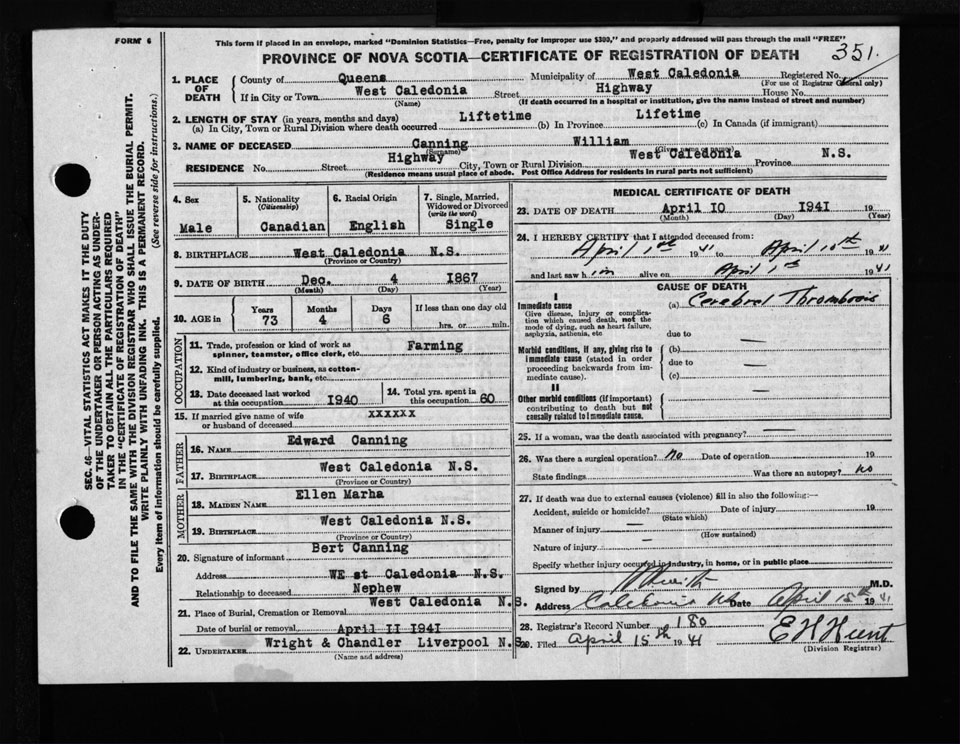 FORM 6
This form if placed in an envelope, marked "Dominion Statistics—Free, penalty for improper use $300," and properly addressed will pass through the mail "FREE"
PROVINCE OF NOVA SCOTIA—CERTIFICATE OF REGISTRATION OF DEATH
351.
1. PLACE OF DEATH
County of Queens Municipality of West Caledonia Registered No.
(For use of Registrar General only)
If in City or Town West Caledonia Street Highway House No.
(Name) (If death occurred in a hospital or institution, give the name instead of street and number)
2. LENGTH OF STAY (in years, months and days)
(a) In City, Town or Rural Division where death occurred Liftetime (b) In Province Lifetime (c) In Canada (if immigrant)
3. NAME OF DECEASED Canning William
(Surname) (Given name or names)
RESIDENCE No. Street Highway City, Town or Rural Division West Caledonia Province N.S.
(Residence means usual place of abode. Post Office Address for residents in rural parts not sufficient)
4. Sex
Male
5. Nationality (Citizenship)
Canadian
6. Racial Origin
English
7. Single, Married, Widowed or Divorced (write the word)
Single
8. BIRTHPLACE West Caledonia N.S.
(Province or Country)
9. DATE OF BIRTH Dec. 4 1867
(Month) (Day) (Year)
10. AGE in
Years 73
Months 4
Days 6
If less than one day old
hrs. or min.
OCCUPATION
11. Trade, profession or kind of work as spinner, teamster, office clerk, etc. Farming
12. Kind of industry or business, as cotton-mill, lumbering, bank, etc.
13. Date deceased last worked at this occupation 1940
14. Total yrs. spent in this occupation 60
15. If married give name of wife or husband of deceased xxxxxx
FATHER
16. NAME Edward Canning
17. BIRTHPLACE West Caledonia N.S.
(Province or Country)
MOTHER
18. MAIDEN NAME Ellen Marha
19. BIRTHPLACE West Caledonia N.S.
(Province or Country)
20. Signature of informant Bert Canning
Address WE st Caledonia N.S.
Relationship to deceased Nephew
21. Place of Burial, Cremation or Removal West Caledonia N.S.
Date of burial or removal April II I94I
22. UNDERTAKER Wright & Chandler Liverpool N.S.
(Name and address)
MEDICAL CERTIFICATE OF DEATH
23. DATE OF DEATH April IO I94I 19
(Month) (Day) (Year)
24. I HEREBY CERTIFY that I attended deceased from:
April 1st 1941 to April 10th 1941
and last saw him alive on April 1st 1941
CAUSE OF DEATH
I
Immediate cause
Give disease, injury or complication which caused death, not the mode of dying, such as heart failure, asphyxia, asthenia, etc
(a) Cerebral Thrombosis
due to —
Morbid conditions, if any, giving rise to immediate cause (stated in order proceeding backwards from immediate cause).
(b)
due to —
(c)
II
Other morbid conditions (if important) contributing to death but not causally related to immediate cause.
25. If a woman, was the death associated with pregnancy? —
26. Was there a surgical operation? No Date of operation 19
State findings Was there an autopsy? No
27. If death was due to external causes (violence) fill in also the following:—
Accident, suicide or homicide? Date of injury 19
(State which)
Manner of injury —
(How sustained)
Nature of injury —
Specify whether injury occurred in industry, in home, or in public place
Signed by M.D.
Address Caledonia NS Date April 15th 1941
28. Registrar's Record Number 180
29. Filed April 15th 1941 E H Hunt
(Division Registrar)
SEC. 46—VITAL STATISTICS ACT MAKES IT THE DUTY
OF THE UNDERTAKER OR PERSON ACTING AS UNDER-
TAKER TO OBTAIN ALL THE PARTICULARS REQUIRED
IN THE "CERTIFICATE OF REGISTRATION OF DEATH"
AND TO FILE THE SAME WITH THE DIVISION REGISTRAR WHO SHALL ISSUE THE BURIAL PERMIT.
WRITE PLAINLY WITH UNFADING INK. THIS IS A PERMANENT RECORD.
Every item of information should be carefully supplied. (See reverse side for instructions.)